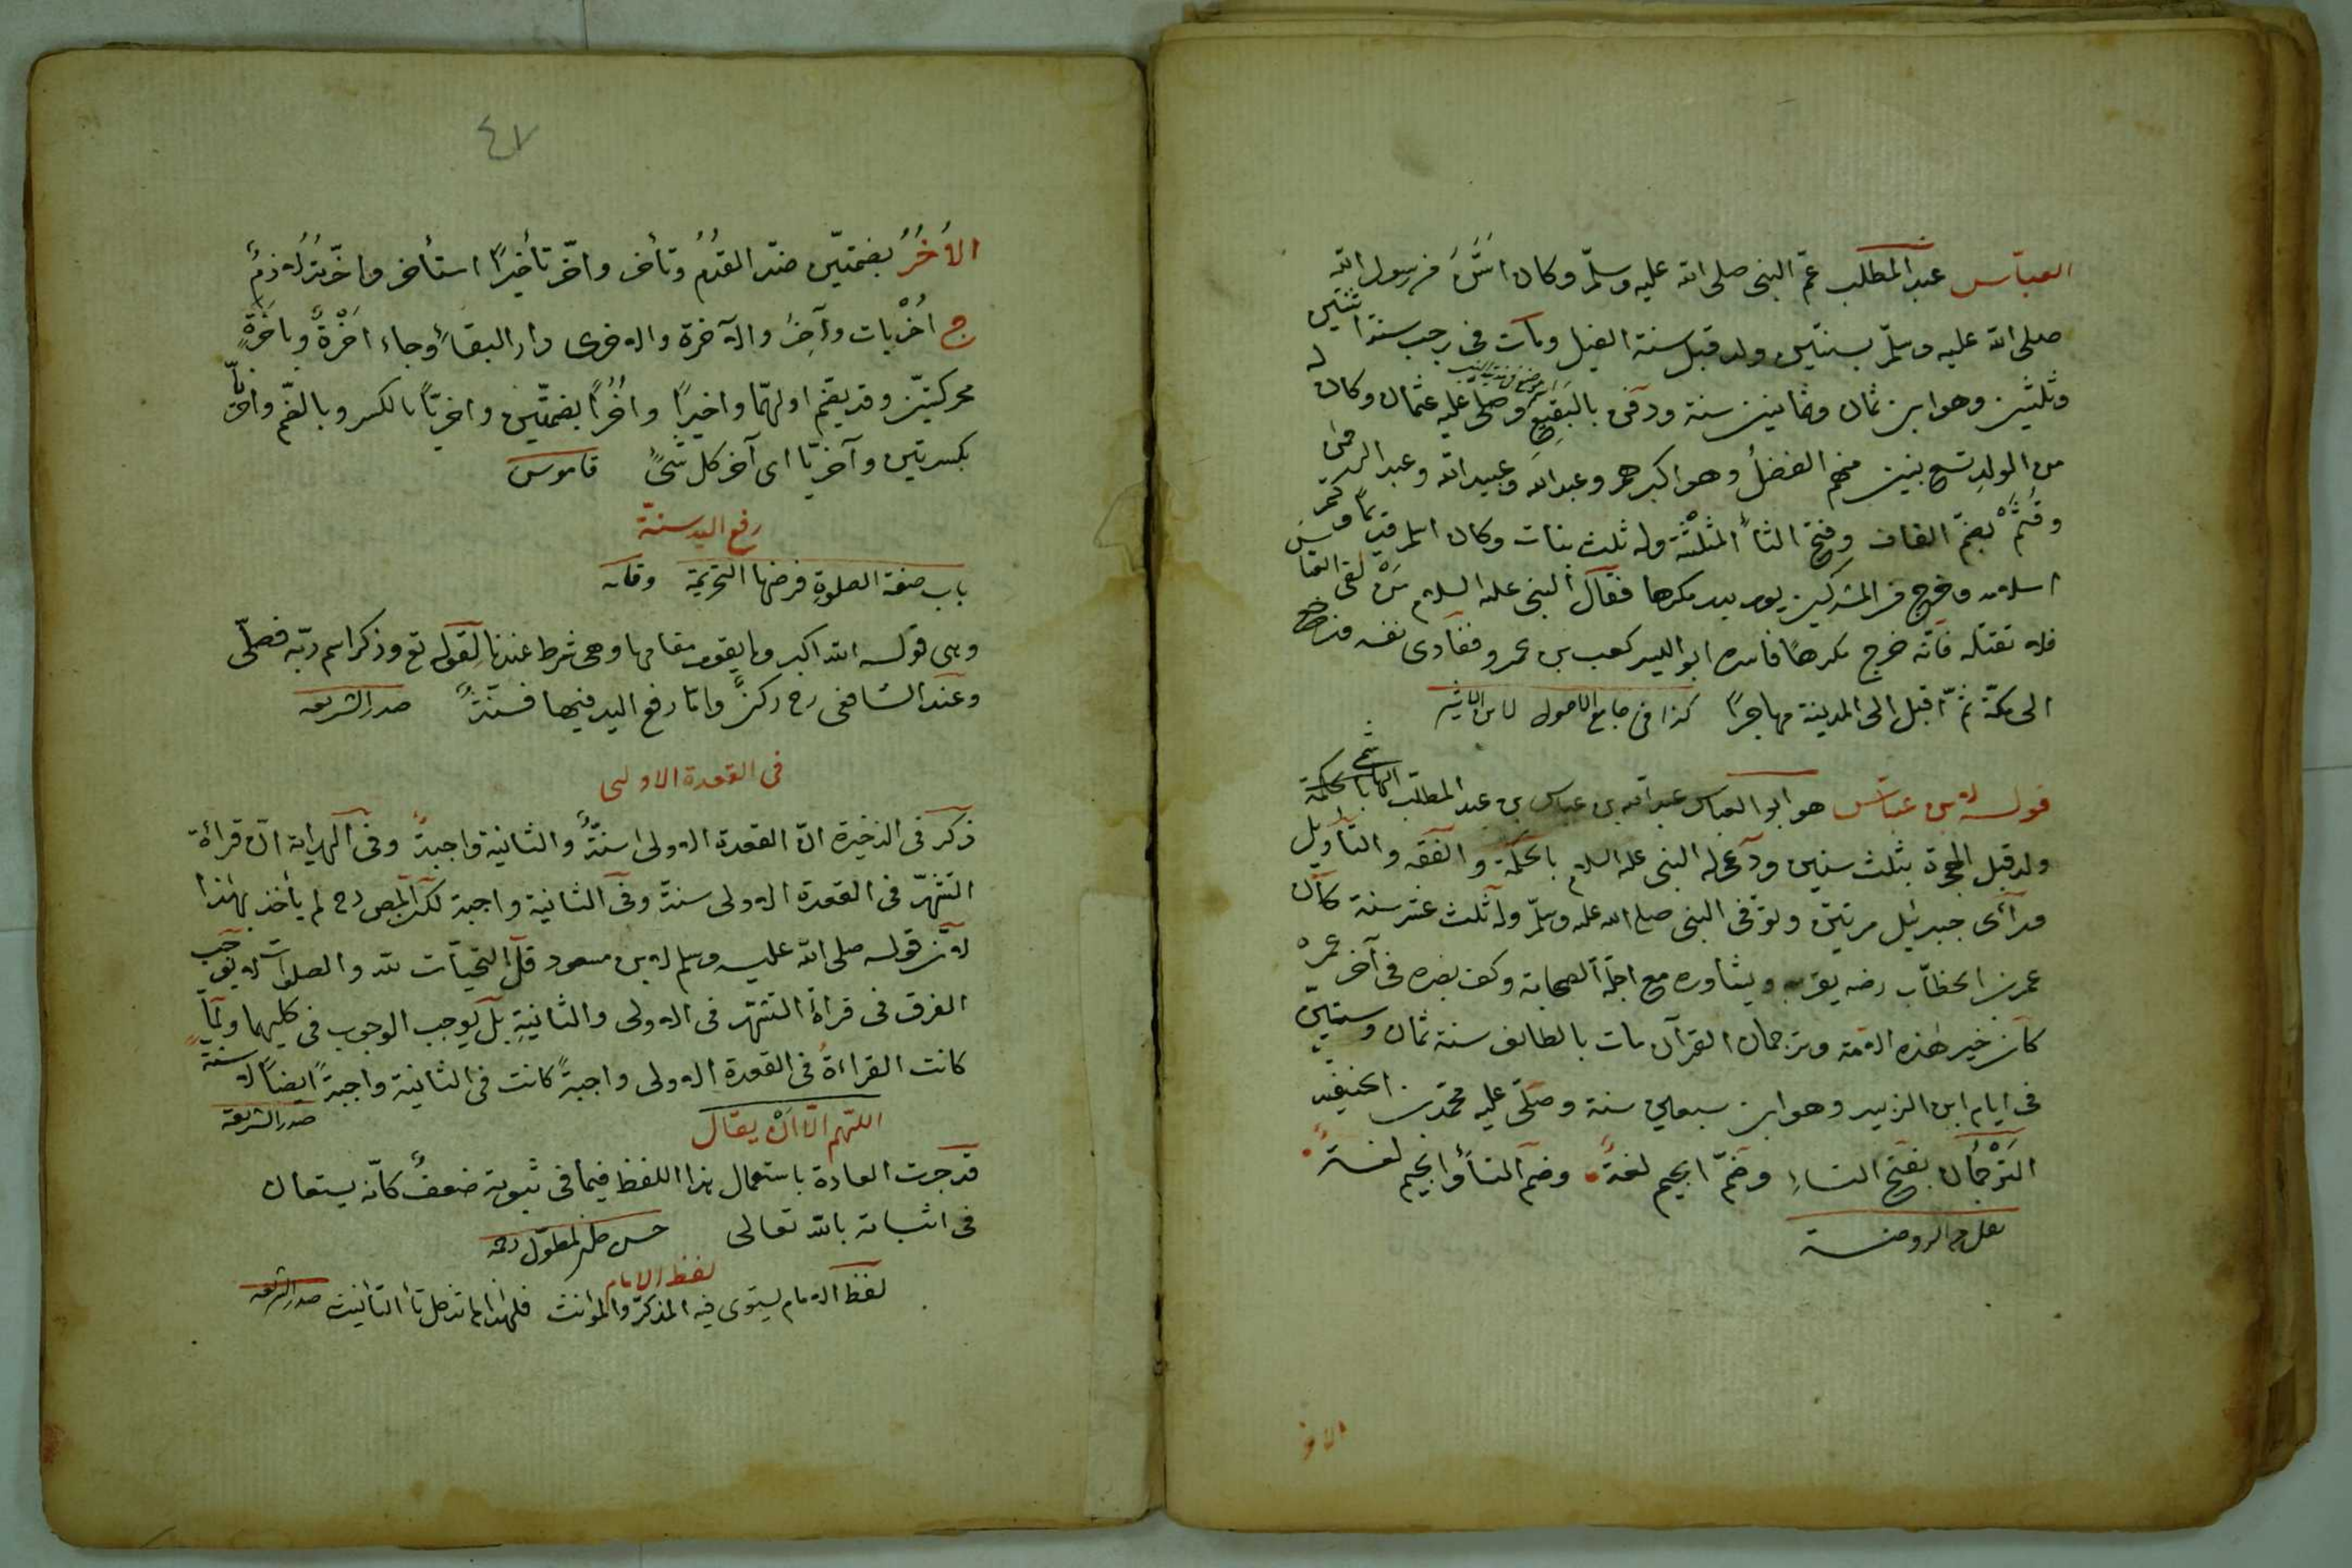 العبّاس عبد المطلب عمّ النبى صلى الله عليه وسلّم وكان اسَنَّ من رسول الله
صلى الله عليه وسلّم بسنتين ولد قبل سنة الفيل ومات فى رجب سنة اثنتين
وثلثين وهو ابن ثمان وثمانين سنة ودفن بالبقيع وصلى عليه عثمان وكان له
من الولد تسع بنين منهم الفضلُ وهو اكبرهم وعبد الله وعبيد الله وعبد الرحمن
وقُثَمُ بضمّ القاف وفتح الثاءِ المثلّثة وله ثلث بنات وكان اسلم قديمًا وكتم
اسلامه وخرج مع المشركين يوم بدر مكرها فقال النبى عليه السلام مَنْ لقى العباس
فلا تقتله فانّه خرج مكرهًا فاسره ابو اليسر كعب بن عمرو ففادى نفسه فرجع
الى مكّة ثمّ اقبل الى المدينة مهاجرًا كذا فى جامع الاصول لابن الاثير
قوله لابن عبّاس هو ابو العباس عبد الله بن عباس بن عبد المطلب الهاشمى
ولد قبل الهجرة بثلث سنين ودعى له النبى عليه السلام بالحكمة والفقه والتأويل
ورآى جبرئيل مرتين وتوفى النبى صلى الله عليه وسلّم وله ثلث عشر سنة كان
عمر بن الخطّاب رضه يقرّبه ويشاوره مع اجلّة الصحابة وكف بصره فى آخر عمره
كان خير هذه الامّة وترجمان القرآن مات بالطائف سنة ثمان وستين
فى ايام ابن الزبير وهو ابن سبعين سنة وصلّى عليه محمّد بن الحنيفيه
الترْجُمان بفتح التاءِ وضمّ الجيم لغةً وضم التاءُ والجيم لغةً
نقل من الروضة
الاخر
٤٧
الاُخُرُ بضمتيّن ضدّ القدُمُ وتأخر واخّر تأخيرًا استأخر واخّرتُه لازمٌ
ج اُخْريات وآخِرُ والآخرة والاخرى دار البقاءُ وجاء اَخْرةً وباَخَرَةٍ
محركتيّن وقد يضم اولهّما واخيرًا واُخُرًا بضمتّين واخريّا بالكسر وبالضّم واخِرِيّا
بكسرتين وآخريّا اى آخر كل شئٍ قاموس
رفع اليد سنّة
باب صفة الصلوةِ فرضها التحريمة وقايه
وهى قوله الله اكبر وما يقوم مقامها وهى شرط عندنا لِقوله تع وذكر اسم ربّه فصلّى
وعند الشافعى رح ركنٌ وامّا رفع اليد فيها فسنّةٌ صدر الشريعه
فى القعدة الاولى
ذكر فى الذخيرة انّ القعدة الاولى سنّةٌ والثانية واجبةٌ وفى الهداية انّ قرائة
التشهّد فى القعدة الاولى سنةٌ وفى الثانية واجبة لكن المص رح لم يأخذ بهذا
لانّ قوله صلى الله عليه وسلم لابن مسعود قل التحيّات لله والصلوات لا يوجب
الفرق فى قرأة التشهّد فى الاولى والثانيةِ بل يوجب الوجوب فى كليهما ولمّا
كانت القراءةُ فى القعدة الاولى واجبةً كانت فى الثانية واجبةً ايضًا لا سنةً
صدر الشريعة
اللّهم الّا انْ يقال
قد جرت العادة باستعمال هذا اللفظ فيما فى ثبوته ضعفٌ كانّه يستعان
فى اثباته بالله تعالى حسن مطوّل رحه
لفظ الامام
لفظ الامام يستوى فيه المذكّر والمؤنث فلهذا لم تدخل تاء التأنيث صدر الشريعه